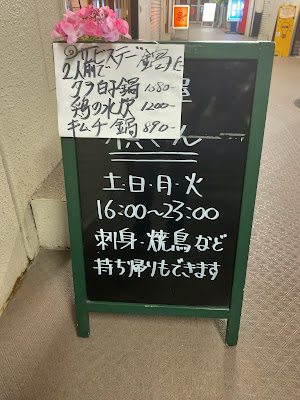 2人前で
タラ白子鍋 1080-
鶏の水炊 1200-
キムチ鍋 890-
土・日・月・火
16:00〜23:00
刺身・焼鳥など
持ち帰りもできます